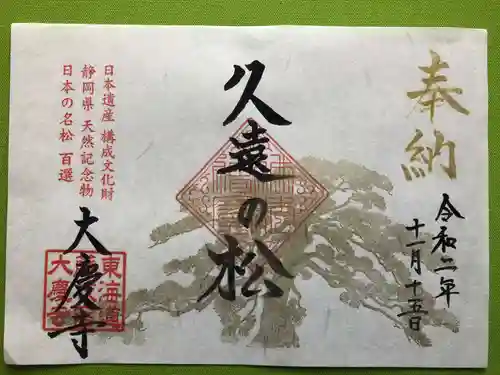 奉納
令和二年
十一月十五日
久遠の松
日本遺産 構成文化財
静岡県 天然記念物
日本の名松 百選
大慶寺
東海道
大慶寺